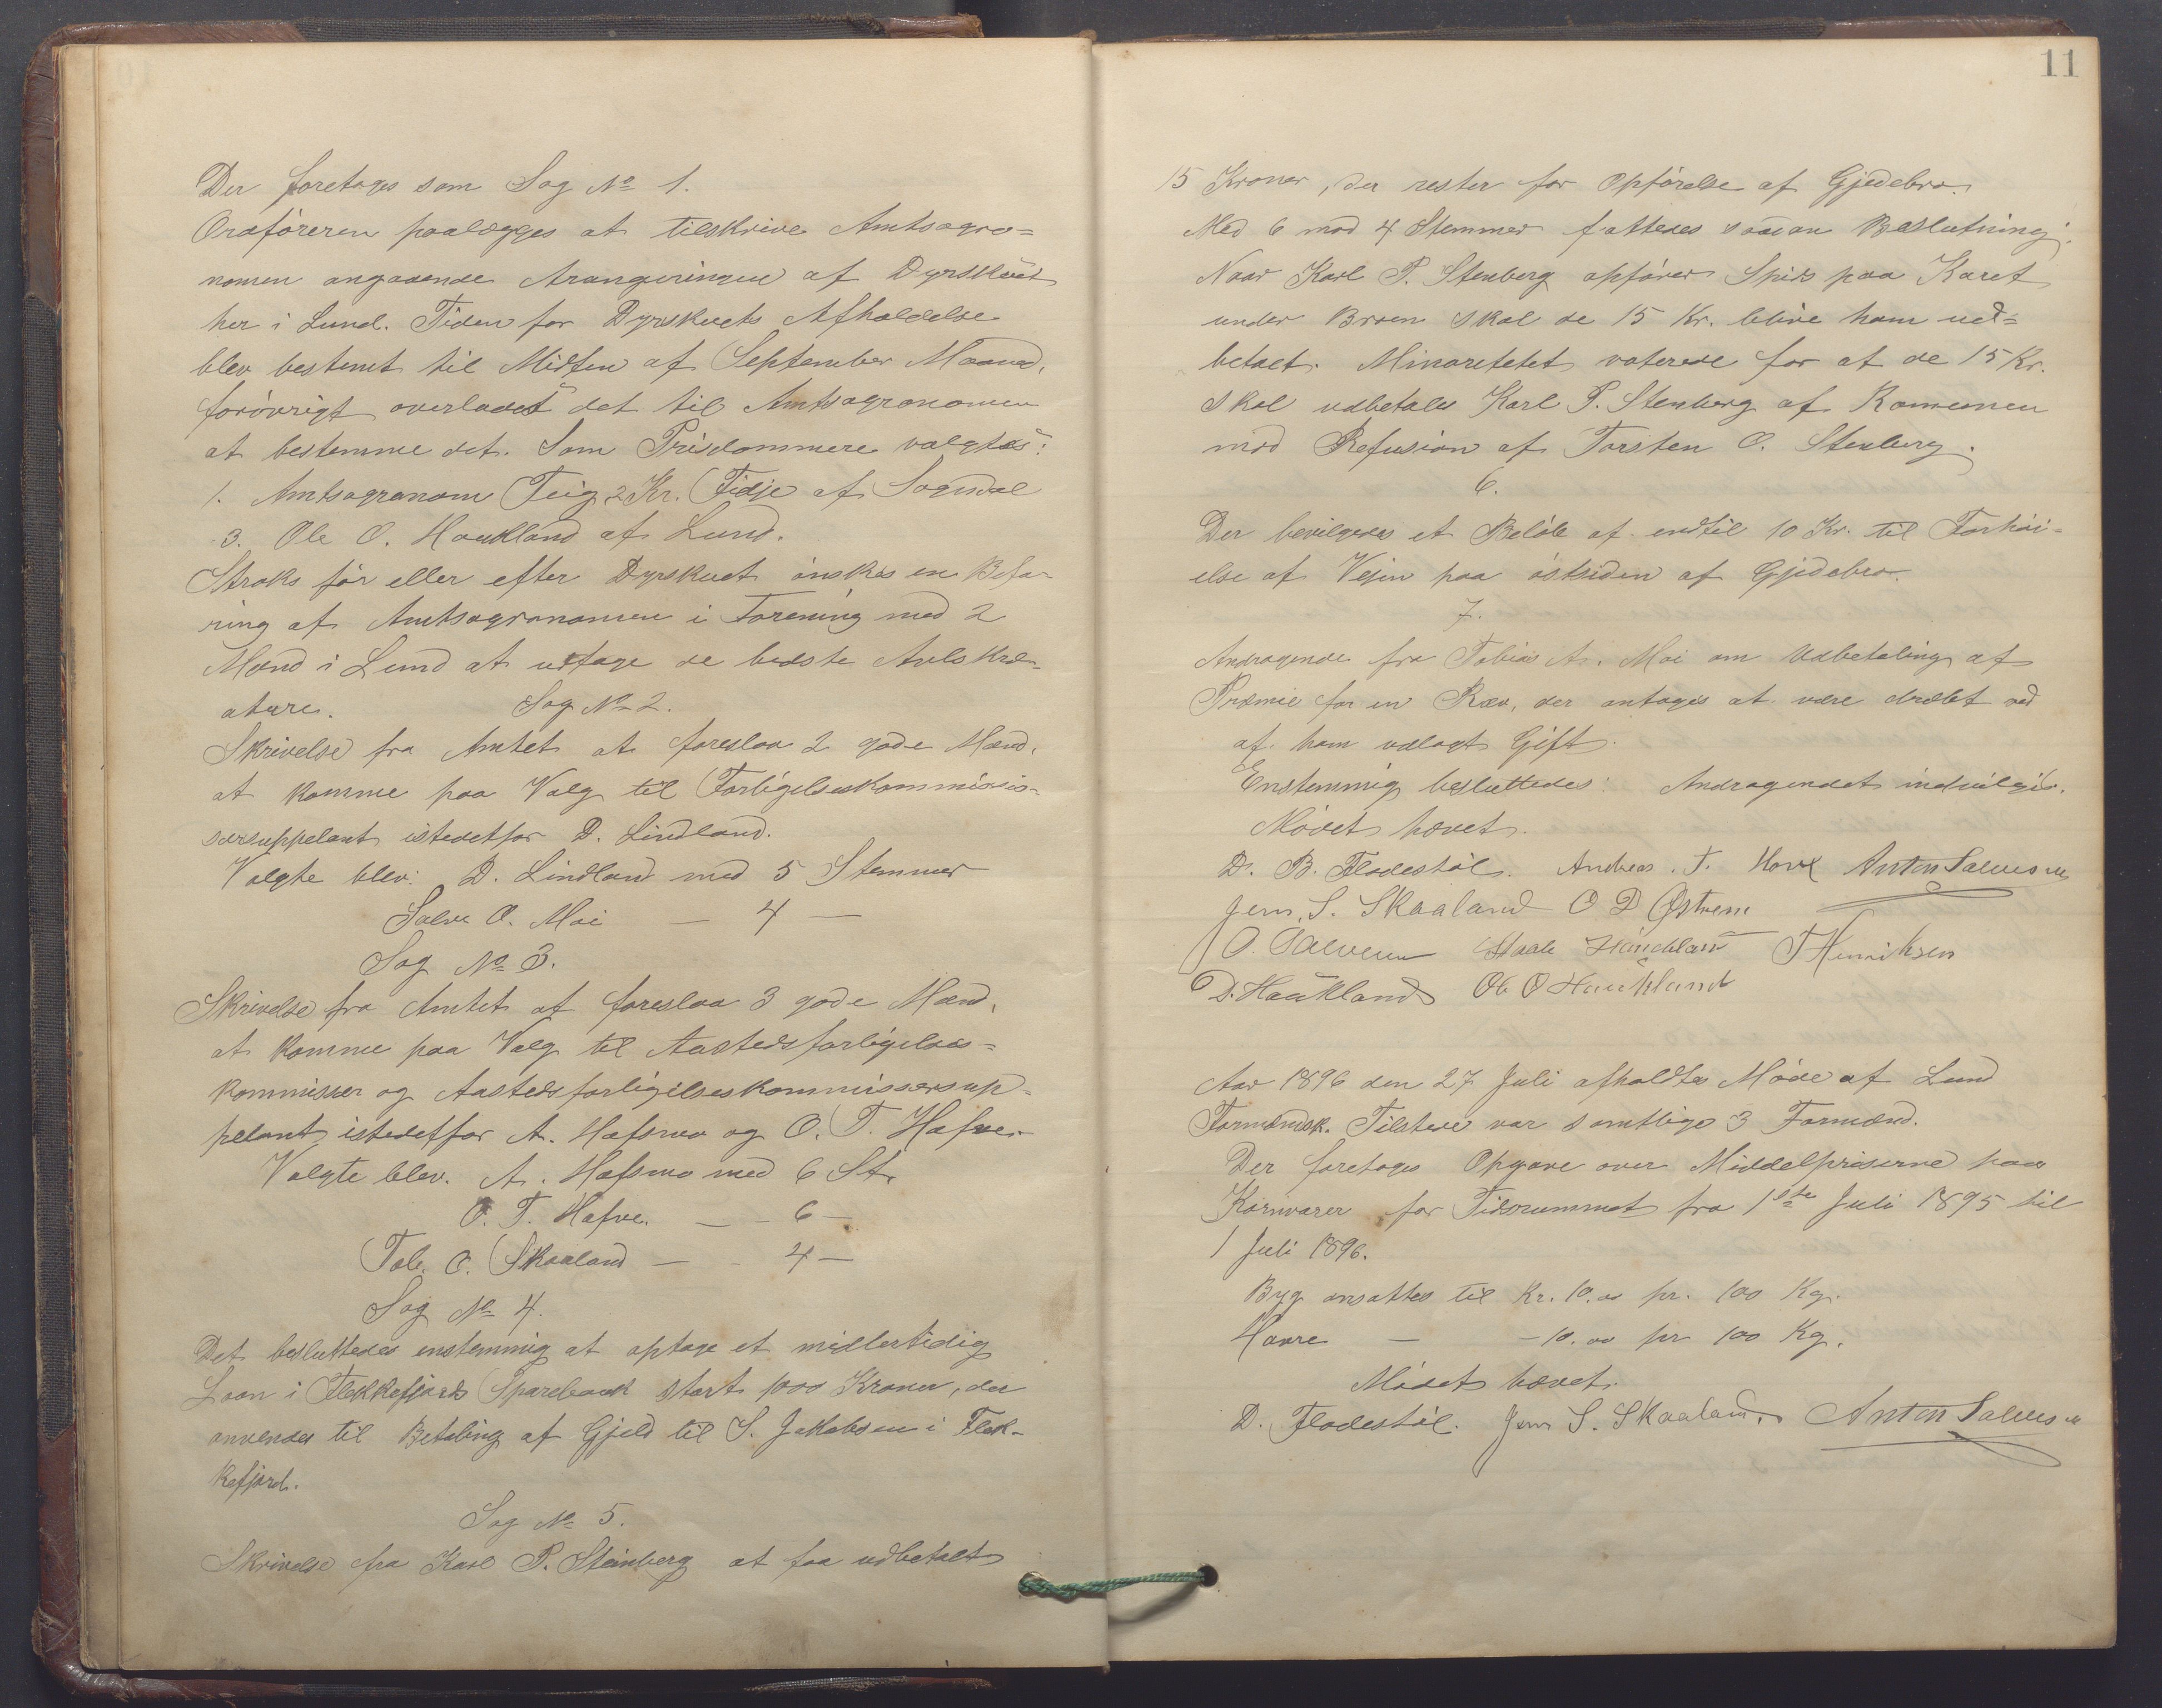 Der foretages som Sag No 1.
Ordføreren paalægges at tilskrive Amtsagro=
nomen angaaende Arangeringen af Dyrskuet
her i Lund. Tiden for Dyrskuets Afholdelse
blev bestemt til Midten af September Maaned,
forøvrigt overlades det til Amtsagronomen
at bestemme det. Som Prisdommere valgtes:
1. Amtsagronom Teig 2 Kr. Fidje af Sogndal
3. Ole O. Haukland af Lund.
Straks før eller efter Dyrskuet ønskes en Befa-
ring af Amtsagronomen i Forening med 2
Mænd i Lund at udtage de bedste Avlskre-
ature. Sag No 2.
Skrivelse fra Amtet at foreslaa 2 gode Mænd,
at komme paa Valg til Forligelseskommissis-
sersuppelant istedetfor D. Lindland.
Valgte blev: D. Lindland med 5 Stemmer
Salve O. Moi — 4 —
Sag No 3.
Skrivelse fra Amtet at foreslaa 3 gode Mænd,
at komme paa Valg til Aastedsforligelses=
kommisser og Aastedsforligelseskommissersup-
pelant istedetfor A. Hafsmo og O. T. Hafve.
Valgte blev. A. Hafsmo med 6 St.
O. T. Hafve. — - 6 —
Tob. O. Skaaland — - 4 —
Sag No 4.
Det besluttedes enstemmig at optage et midlertidig
Laan i Flekkefjords Sparebank stort 1000 Kroner, der
anvendes til Betaling af Gjeld til S. Jakobsen i Flek-
kefjord.
Sag No 5.
Skrivelse fra Karl P. Steinberg at faa udbetalt
11
15 Kroner, der rester for Opførelse af Gjedebro.
Med 6 mod 4 Stemmer fattedes saadan Beslutning:
Naar Karl P. Stenberg opfører Spids paa Karet
under Broen skal de 15 Kr. blive ham ud=
betalt. Minoritetet voterede for at de 15 Kr.
skal udbetales Karl P. Stenberg af Komunen
mod Refusion af Torsten O. Stenberg.
6.
Der bevilgedes et Beløb af indtil 10 Kr. til Forhøi-
else af Vejen paa østsiden af Gjedebro.
7.
Andragende fra Tobias A. Moi om Udbetaling af
Præmie for en Ræv, der antages at være dræbt ved
af ham udlagt Gift.
Enstemmig besluttedes: Andragendet indvilges.
Mødet hævet.
D. B. Flodestøl. Andreas. T. Hove Anton Salvesen
Jern. S. Skaaland O D Østrem
O. Salvesen Haukland T Henriksen
D. Haukland Ole O Haukland
Aar 1896 den 27 Juli afholdtes Møde af Lund
Formandsk. Tilstede var samtlige 3 Formænd.
Der foretoges Opgave over Middelpriserne paa
Kornvarer for Tidsrummet fra 1ste Juli 1895 til
1 Juli 1896.
Byg ansattes til Kr. 10.00 pr. 100 Kg.
Havre — — 10.00 pr 100 Kg.
Mødet hævet.
D. Flodestøl. Jern S. Skaaland. Anton Salvesen